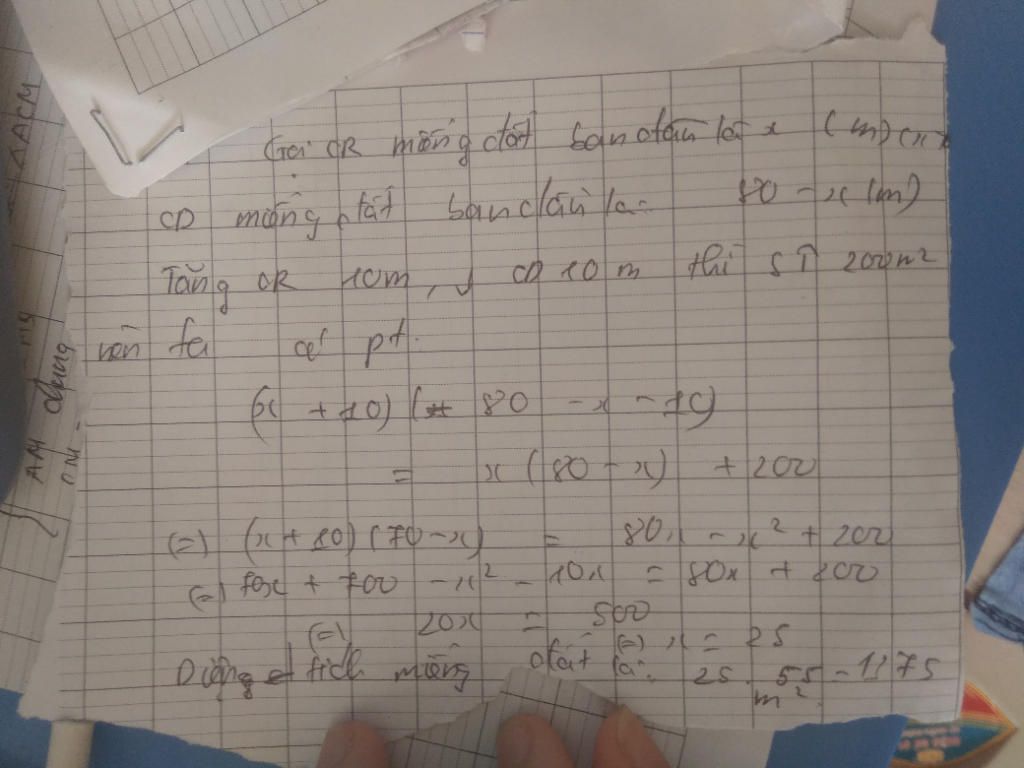 Gọi CR mảng đất ban đầu là x (m) (x>
CD mảng đất ban đầu là: 80 - x (m)
Tăng CR 10m, ↓ CD 10 m thì S↑ 200m²
nên ta có pt:
(x + 10) ( 80 - x - 10)
= x (80 - x) + 200
(=) (x + 10) (70 - x) = 80x - x² + 200
(=) 70x + 700 - x² - 10x = 80x + 200
(=) 20x = 500
(=) x = 25
Diện tích mảng đất là: 25 . 55 = 1375
m².
AACM
AM